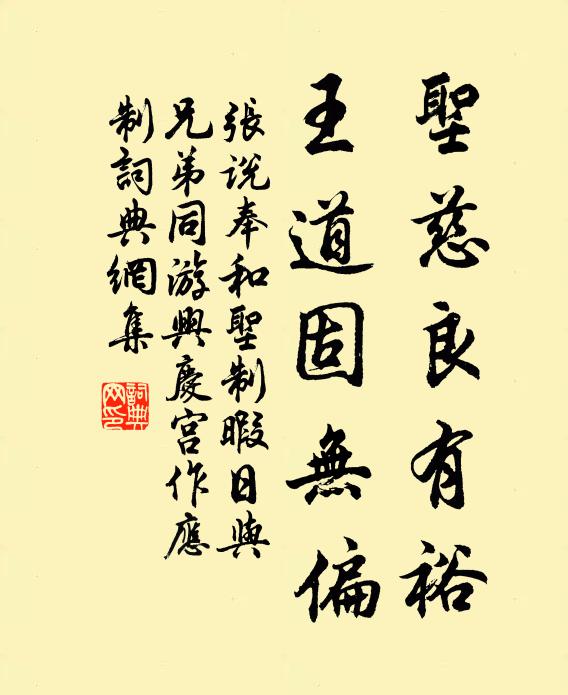 聖慈良有裕
王道固無偏
張説奉和聖制暇日與
兄弟同游興慶宮作應
制詞典網集
詞典网印